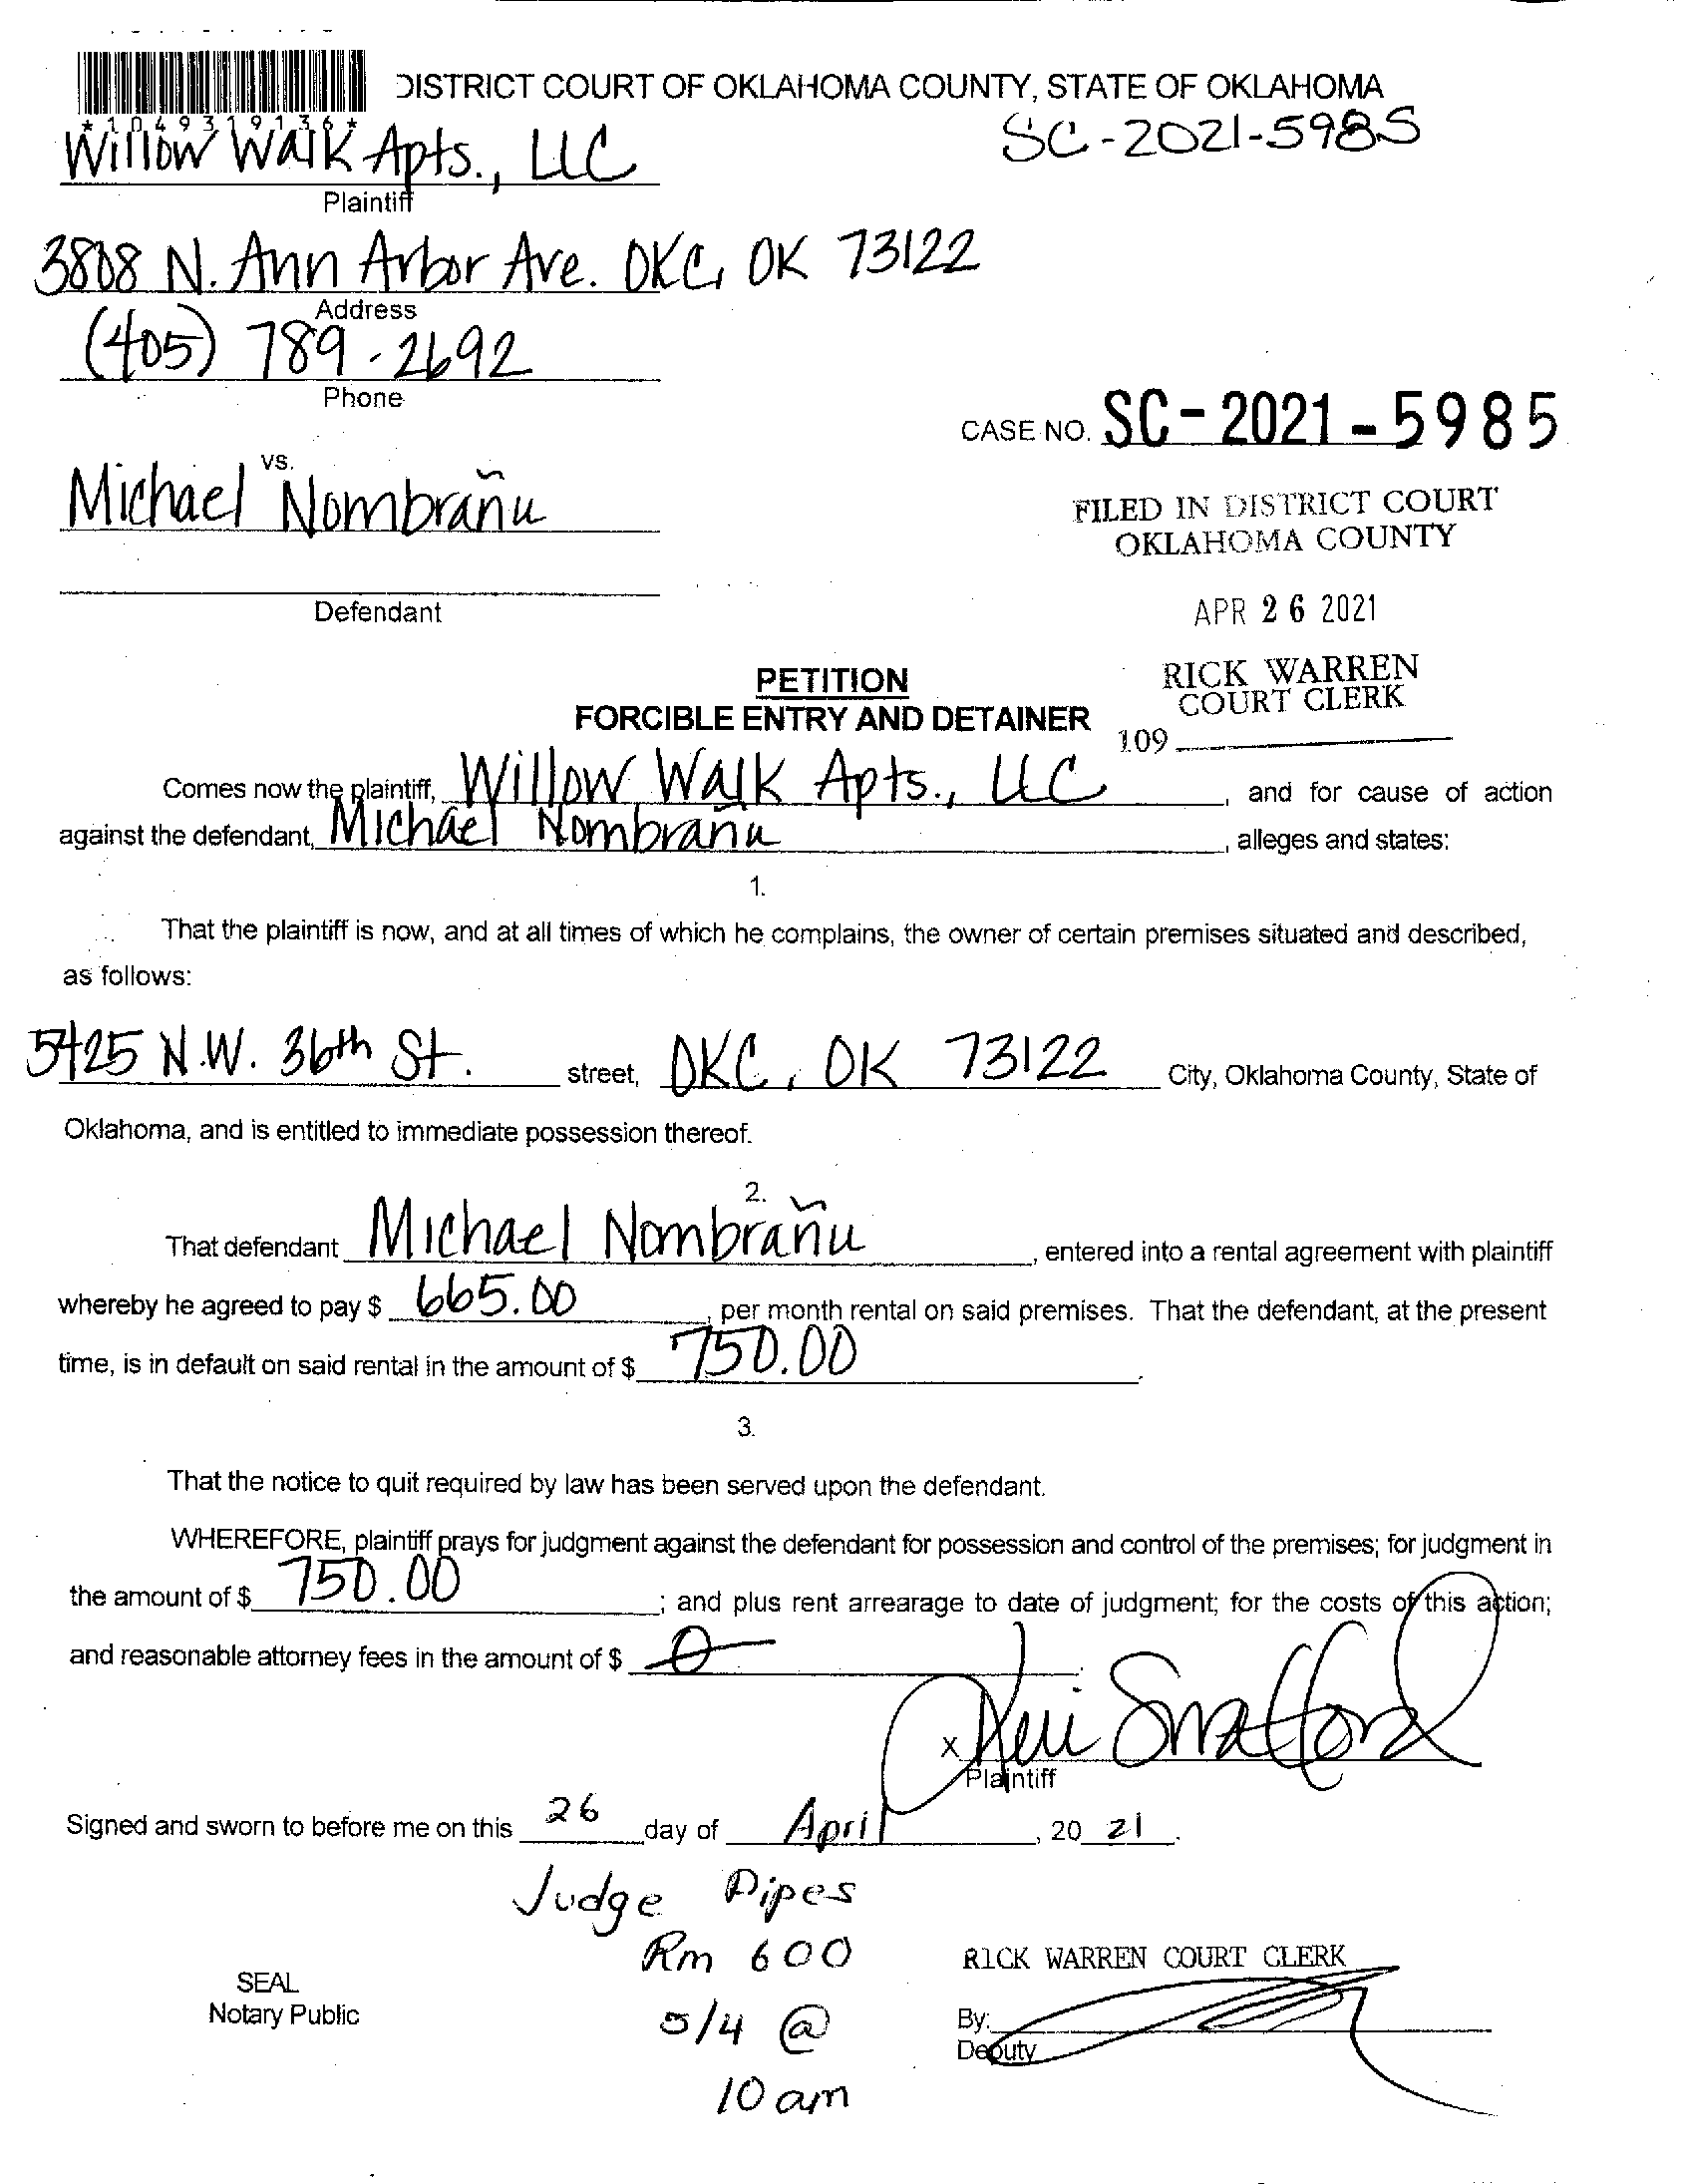 DISTRICT COURT OF OKLAHOMA COUNTY, STATE OF OKLAHOMA
*1049319136*
SC-2021-5985
Willow Walk Apts., LLC
Plaintiff
3808 N. Ann Arbor Ave. OKC, OK 73122
Address
(405) 789-2692
Phone
CASE NO. SC-2021-5985
vs.
Michael Nombrañu
FILED IN DISTRICT COURT
OKLAHOMA COUNTY
Defendant
APR 26 2021
RICK WARREN
COURT CLERK
109
PETITION
FORCIBLE ENTRY AND DETAINER
Comes now the plaintiff, Willow Walk Apts., LLC, and for cause of action
against the defendant, Michael Nombrañu, alleges and states:
1.
That the plaintiff is now, and at all times of which he complains, the owner of certain premises situated and described,
as follows:
5425 N.W. 36th St. street, OKC, OK 73122 City, Oklahoma County, State of
Oklahoma, and is entitled to immediate possession thereof.
2.
That defendant Michael Nombrañu, entered into a rental agreement with plaintiff
whereby he agreed to pay $ 665.00, per month rental on said premises. That the defendant, at the present
time, is in default on said rental in the amount of $ 750.00.
3.
That the notice to quit required by law has been served upon the defendant.
WHEREFORE, plaintiff prays for judgment against the defendant for possession and control of the premises; for judgment in
the amount of $ 750.00; and plus rent arrearage to date of judgment; for the costs of this action;
and reasonable attorney fees in the amount of $ 0.
x
Plaintiff
Signed and sworn to before me on this 26 day of April, 20 21.
Judge Pipes
Rm 600
5/4 @
10 am
SEAL
Notary Public
RICK WARREN COURT CLERK
By:
Deputy